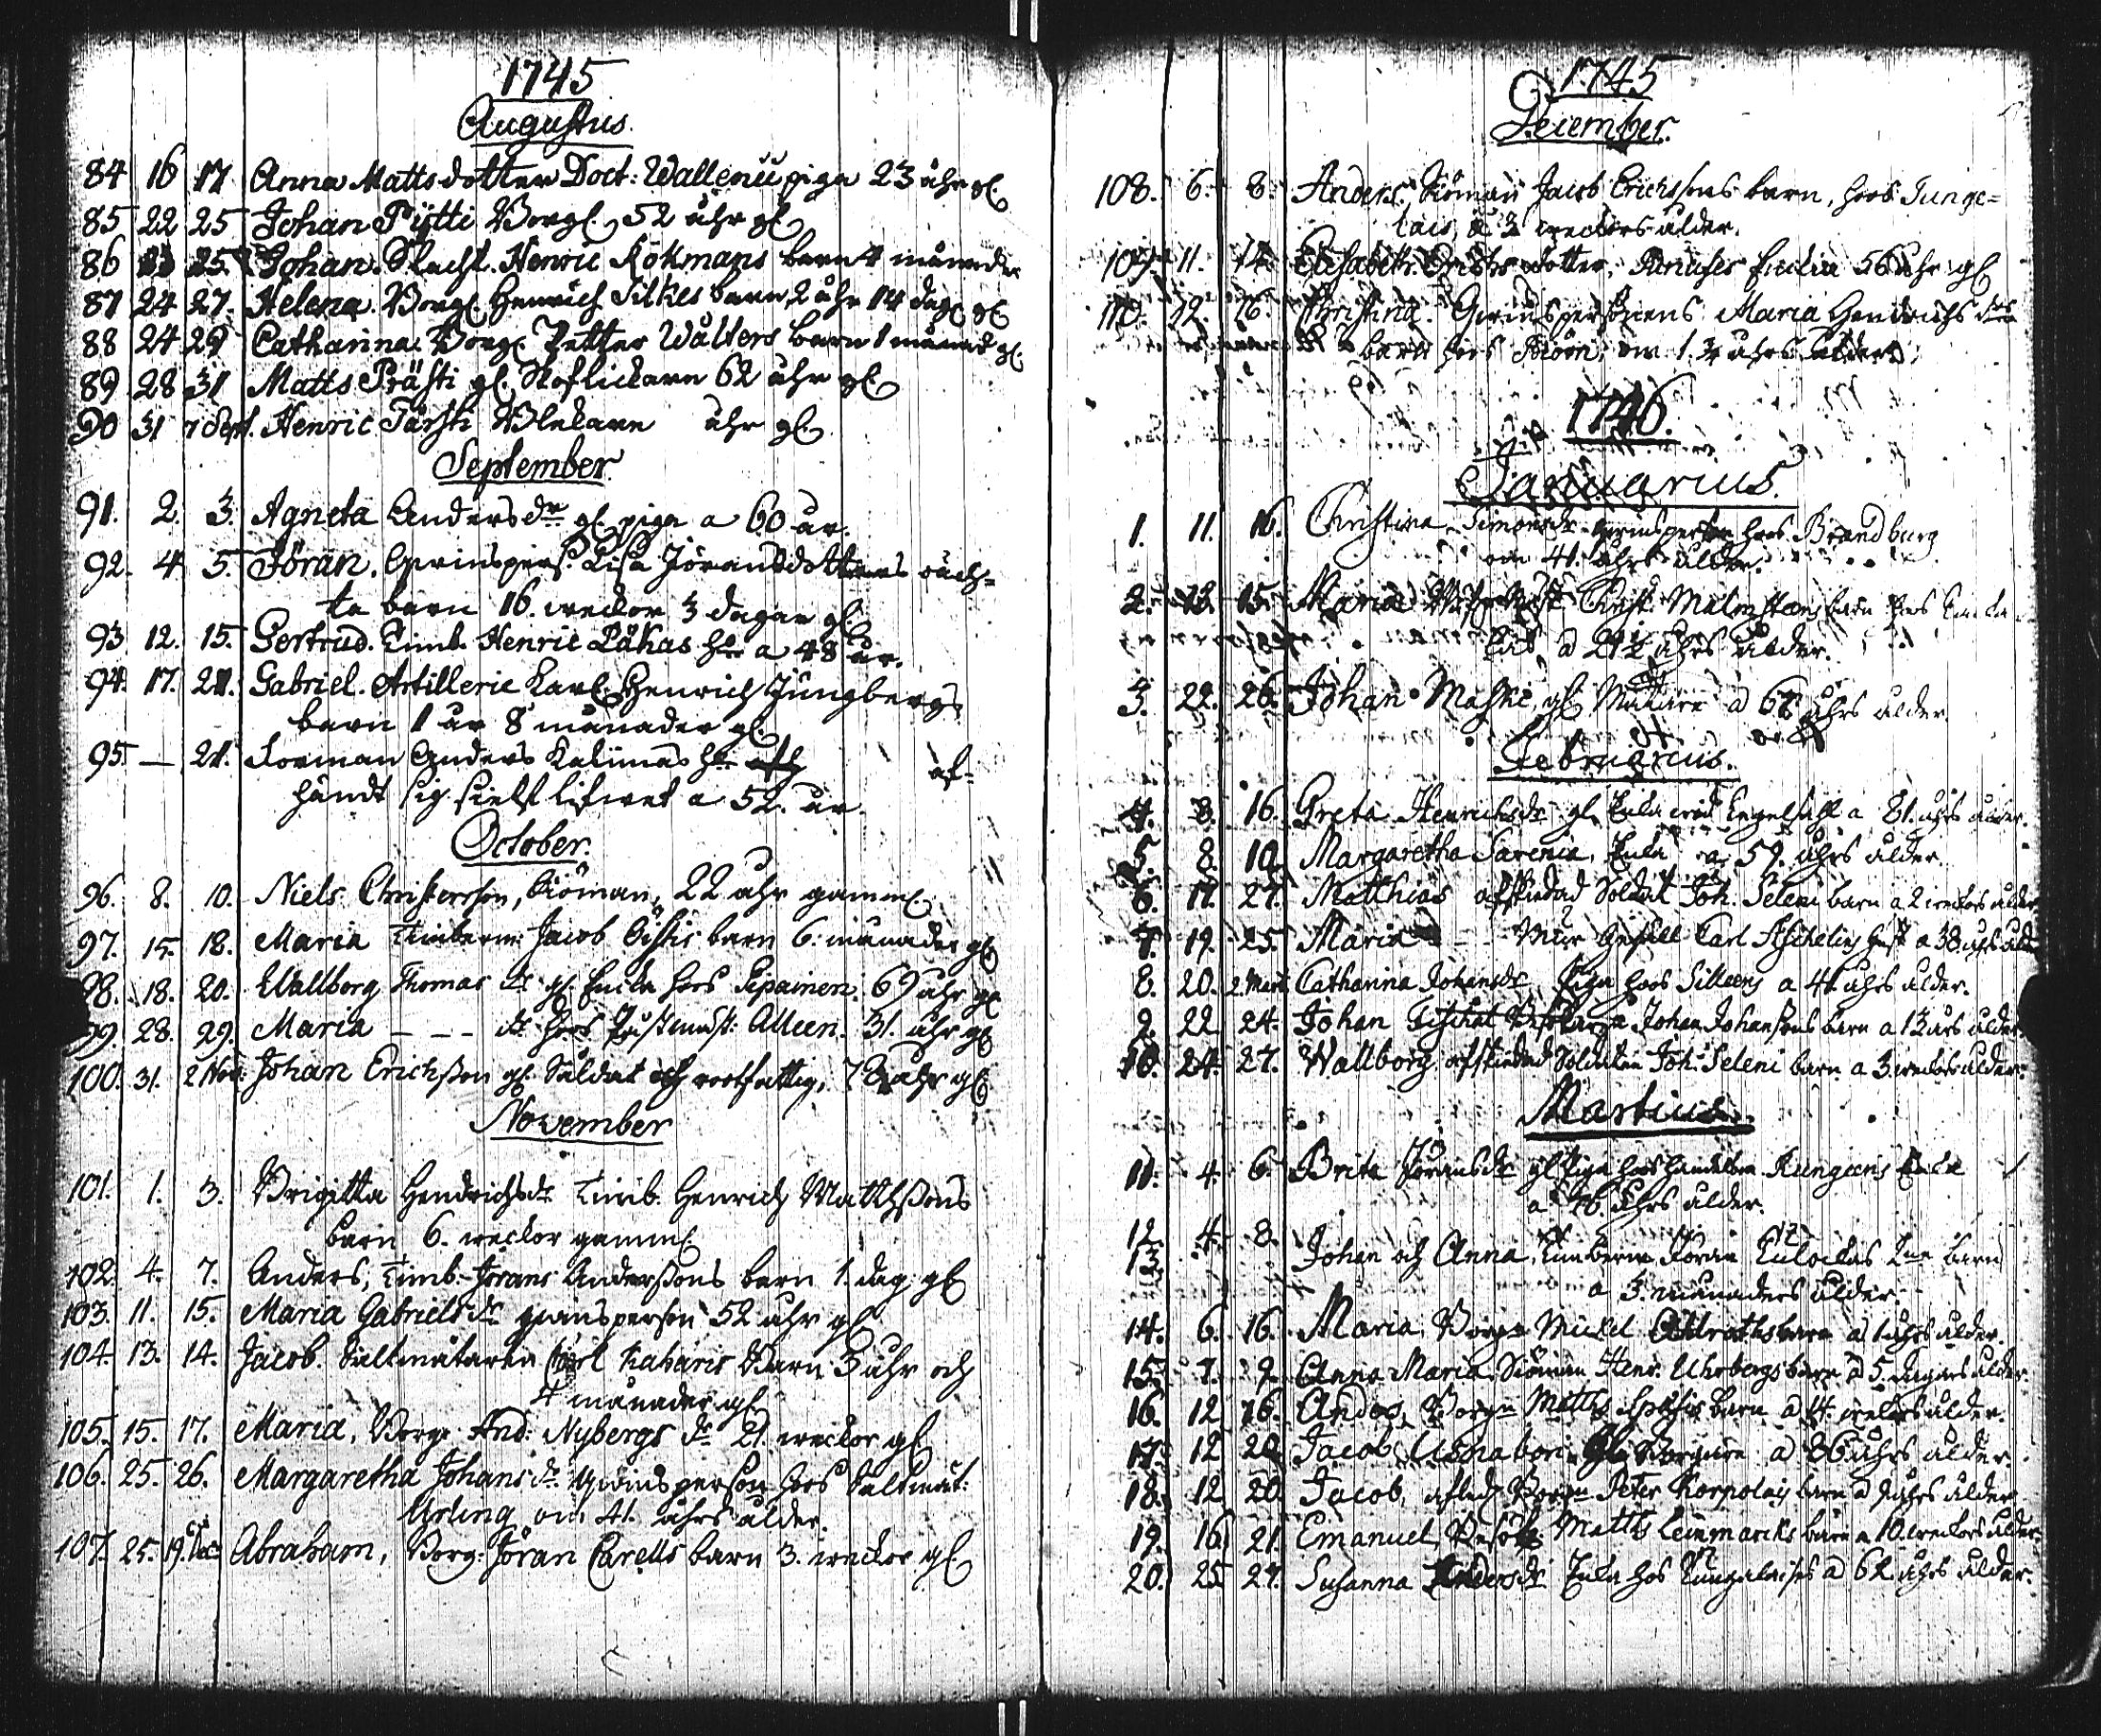 1745
Augustus.
84 16 17 Anna Mattsdotter Doct: Wallenii piga 23 åhr gl.
85 22 25 Johan Pijtti Borgl. 52 åhr gl
86 25 Johan. Slacht. Henric Kökmans barn 4 månader
87 24 27. Helena. Borg. Henrich Silkes barn 2 åhr 14 dag. gl.
88 24 29 Catharina. Borg. Petter Wålters barn 1 månad gl.
89 28 31 Matts Prästi gl. 62 åhr gl
90 31 7 Sept. Henric Tårsti åhr gl.
September
91. 2. 3. Agneta Andersdr gl. piga a 60 år.
92. 4 5. Jöran. Qvinspers. Lisa Jöransdotters oäch=
ta barn 16. weckor 3 dagar gl.
93 12. 15. Gertrud. Timb. Henric Påkas hu a 48 år.
94. 17. 21. Gabriel. Artillerie Karl. Henrich Jungbergs
barn 1 år 8 månader gl.
95. — 21. Forman Anders Kalimas hu af=
händt sig sielf lifwet a 52. år.
October.
96. 8. 10. Niels Christersson, Siöman, 22 åhr gamml.
97. 15. 18. Maria Timberm: Jacob barn 6. månader gl
98. 18. 20. Wallborg Thomas dr gl. Encka hos Pipainen. 69 åhr gl
99. 28. 29. Maria — — — dr hos Alleen. 31. åhr gl
100. 31. 2 Nov: Johan Erichsson gl. Soldat och rootfattig, 78 åhr gl
November
101. 1. 3. Brigitta Hendrichsdr Timb. Henrich Matthssons
barn 6. weckor gamml.
102. 4. 7. Anders, Timb. Jörans Anderssons barn 1. dag gl
103. 11. 15. Maria Gabrielsdr qwinsperson 52 åhr gl
104. 13. 14. Jacob. Saltmätaren Karl Kaharis Barn 3 åhr och
4 månader gl.
105. 15. 17. Maria, Borg. And: Nybergs dr 21. weckor gl
106. 25. 26. Margaretha Johansdr qwinsperson hos Saltmät:
Urling om 41. åhrs ålder.
107. 25. 19. Dec: Abraham, Borg: Jöran Carells barn 3. weckor gl.
1745
December.
108. 6. 8. Anders, Siöman Jacob Erichssons barn, hoos Tunge=
lais, a 3 weckors ålder.
109. 11. 14. Elisabeth Erichsdotter, Encka 56 åhr gl
110. 12. 16. Christina. Qwinspersonens Maria Hendrichsdrs
barn hos Biörn, om 1. 3/4 åhrs ålder.
1746.
Januarius.
1. 11. 16. Christina Simonsdr qwinsperson hoos Brandburg
om 41. åhrs ålder.
2. 13. 15. Maria Christ. Malmsteens barn hos
a 2 1/2 åhrs ålder.
3. 22. 26. Johan Maski, gl. a åhrs ålder.
Februarius.
4. 8. 16. Greta Henrichsdr gl. Enka Engelstahl a 81. åhrs ålder.
5. 8 10. Margaretha Sarenia, Enka, a 59. åhrs ålder.
6. 17. 27. Matthias afskedad Soldat Joh. Seleni barn a 2 weckors ålder
7. 19. 25. Maria Mur Gesäll Carl Aschelins hust a 38 åhrs ålder
8. 20. 2. Mart. Catharina Johansdr Piga hoos Silleens a 41 åhrs ålder.
9. 22 24. Johan Johan Johanssons barn a 13 års ålder.
10. 24. 27. Wallborg afskedad Soldaten Joh. Seleni barn a 3. weckors ålder.
Martius.
11. 4. 6. Brita Jöransdr gl. Piga hoos Handelsm. Rungeens Enka
a 46 åhrs ålder.
12. 4. 8. Johan och Anna, Timberm. Jöran 2ne barn
13.
a 3. månaders ålder.
14. 6. 16. Maria, Borg. Mickel barn a 1 åhrs ålder.
15. 7. 9. Anna Maria. Siöman Henr. Uhrbergs barn a 5. dagars ålder.
16. 12. 16. Anders, Borg. Matths barn a 14. weckors ålder.
17. 12 20 Jacob a 86 åhrs ålder.
18. 12 20. Jacob, Borg. Peter Korpolais barn a åhrs ålder
19. 16. 21. Emanuel, Matths Leinmarcks barn a 10. weckors ålder.
20. 25 27. Susanna Andersdr Enka hos a 62. åhrs ålder.